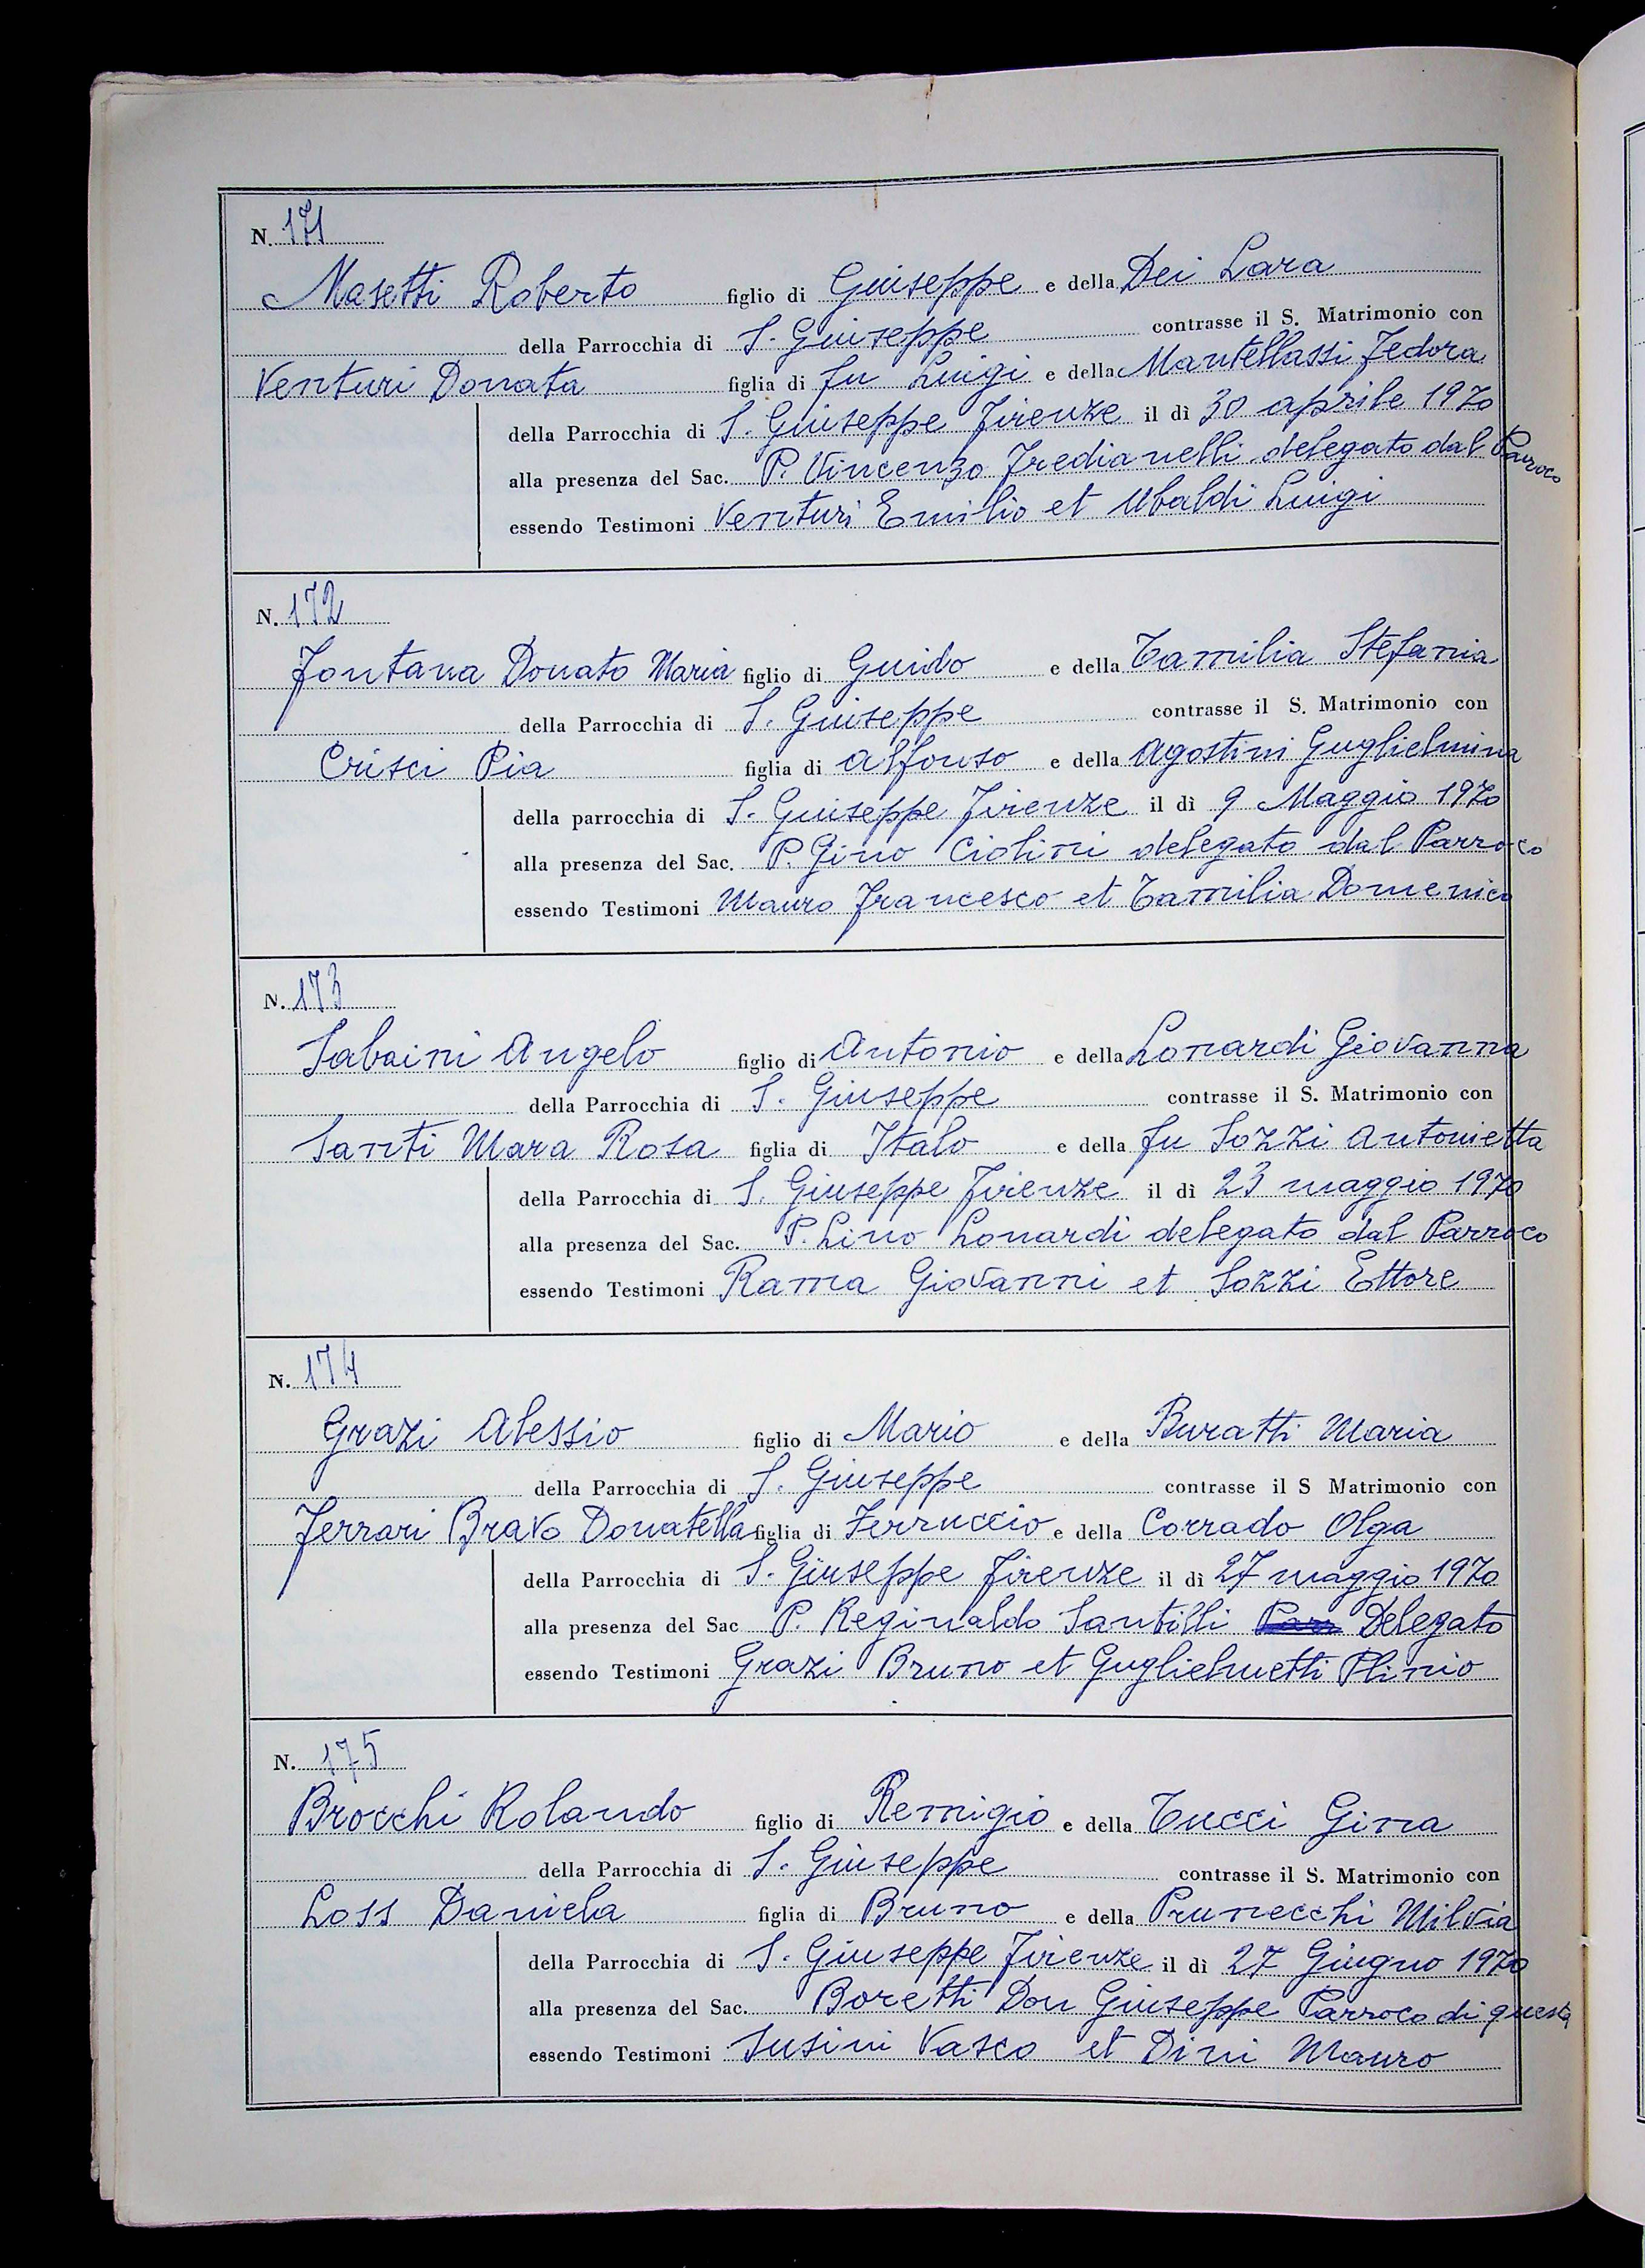 N. 171
Masetti Roberto figlio di Giuseppe e della Dei Lara
della Parrocchia di S. Giuseppe contrasse il S. Matrimonio con
Venturi Donata figlia di fu Luigi e della Mantellassi Fedora
della Parrocchia di S. Giuseppe Firenze il dì 30 aprile 1970
alla presenza del Sac. P. Vincenzo Fredianelli delegato dal Parroco
essendo Testimoni Venturi Emilio et Ubaldi Luigi
N. 172
Fontana Donato Maria figlio di Guido e della Tamilia Stefania
della Parrocchia di S. Giuseppe contrasse il S. Matrimonio con
Crisci Pia figlia di Alfonso e della Agostini Guglielmina
della parrocchia di S. Giuseppe Firenze il dì 9 Maggio 1970
alla presenza del Sac. P. Gino Ciolini delegato dal Parroco
essendo Testimoni Mauro Francesco et Tamilia Domenico
N. 173
Sabaini Angelo figlio di Antonio e della Lonardi Giovanna
della Parrocchia di S. Giuseppe contrasse il S. Matrimonio con
Santi Mara Rosa figlia di Italo e della fu Sozzi Antonietta
della Parrocchia di S. Giuseppe Firenze il dì 23 maggio 1970
alla presenza del Sac. P. Lino Lonardi delegato dal Parroco
essendo Testimoni Rama Giovanni et Sozzi Ettore
N. 174
Grazi Alessio figlio di Mario e della Buratti Maria
della Parrocchia di S. Giuseppe contrasse il S Matrimonio con
Ferrari Bravo Donatella figlia di Ferruccio e della Corrado Olga
della Parrocchia di S. Giuseppe Firenze il dì 27 maggio 1970
alla presenza del Sac P. Reginaldo Santilli Delegato
essendo Testimoni Grazi Bruno et Guglielmetti Plinio
N. 175
Brocchi Rolando figlio di Remigio e della Tucci Gina
della Parrocchia di S. Giuseppe contrasse il S. Matrimonio con
Loss Daniela figlia di Bruno e della Prunecchi Milvia
della Parrocchia di S. Giuseppe Firenze il dì 27 Giugno 1970
alla presenza del Sac. Boretti Don Giuseppe Parroco di questa
essendo Testimoni Susini Vasco et Dini Mauro